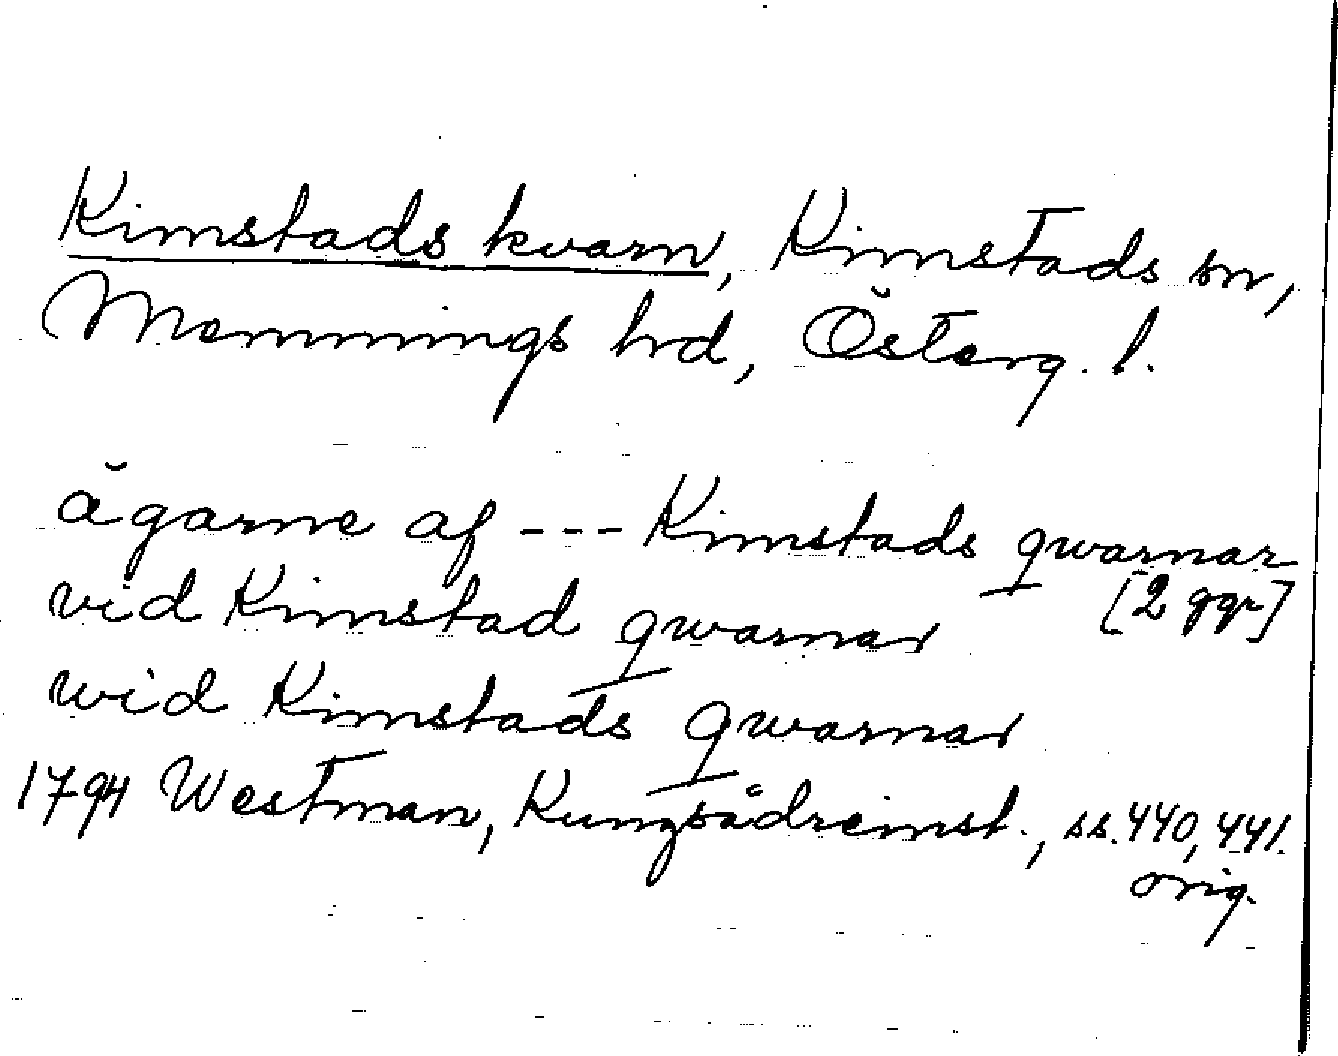 Kimstads kvarn, Kimstads sn,
Memmings hrd, Österg. l.
ägarne af --- Kimstads qwarnar
[2 ggr]
vid Kimstad qwarnar
wid Kimstads qwarnar
1794 Westman, Kungsådreinst., ss. 440, 441.
orig.